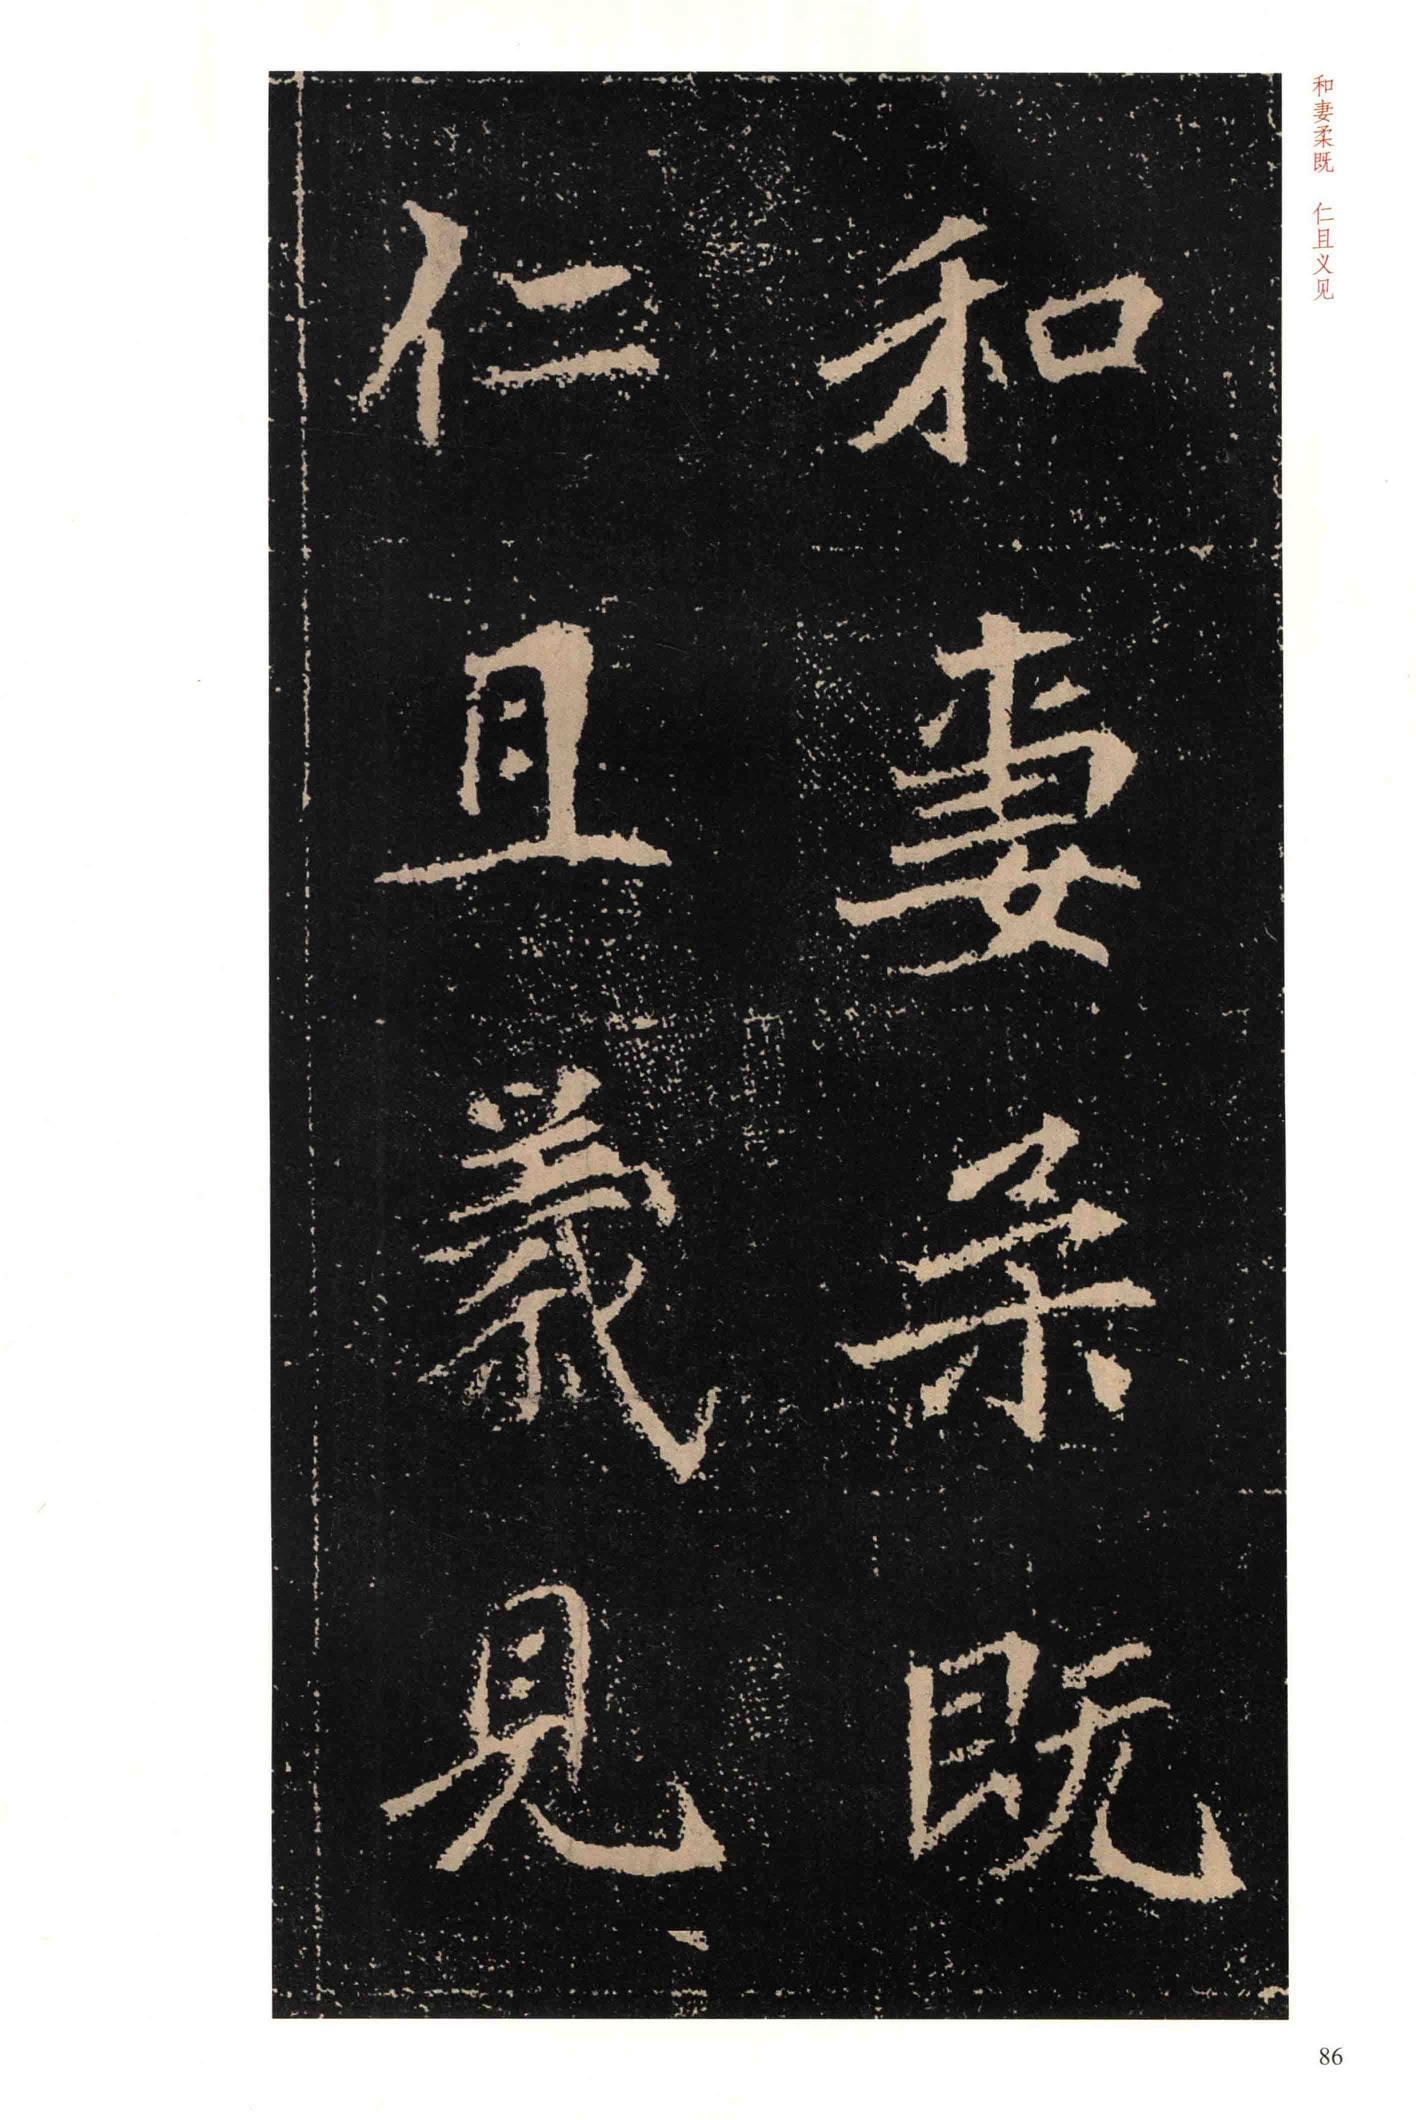 和妻柔既　仁且义见
和妻柔既
仁且義見
86